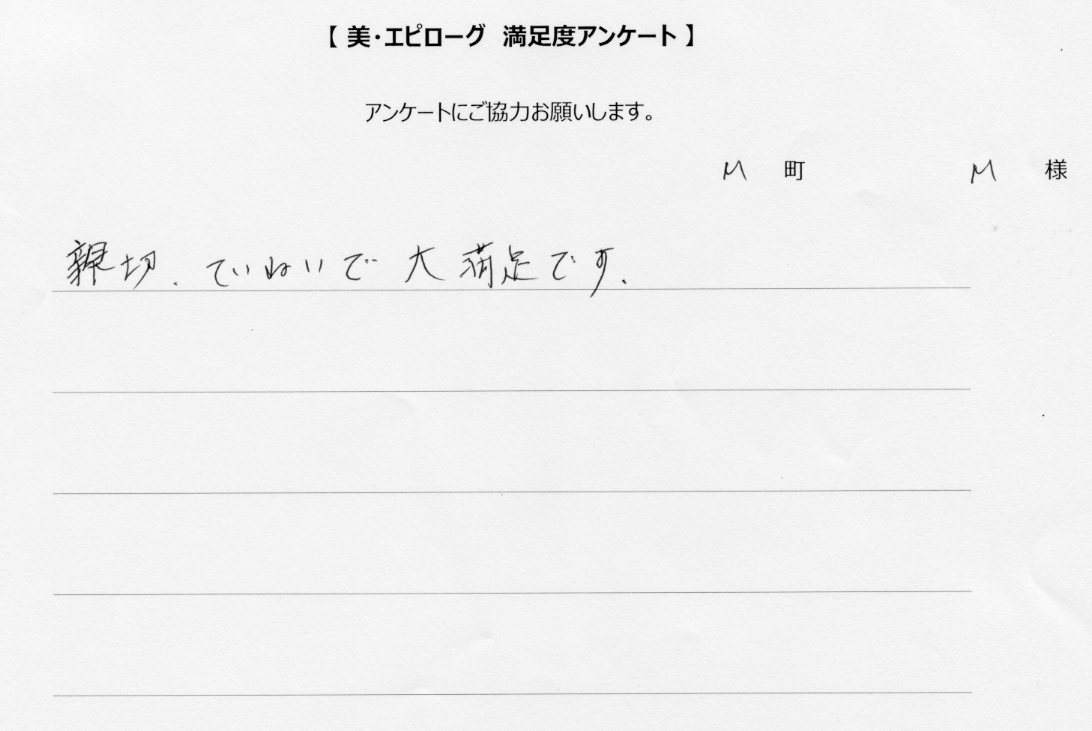 【 美・エピローグ 満足度アンケート 】
アンケートにご協力お願いします。
M 町 M 様
親切、ていねいで 大満足です。